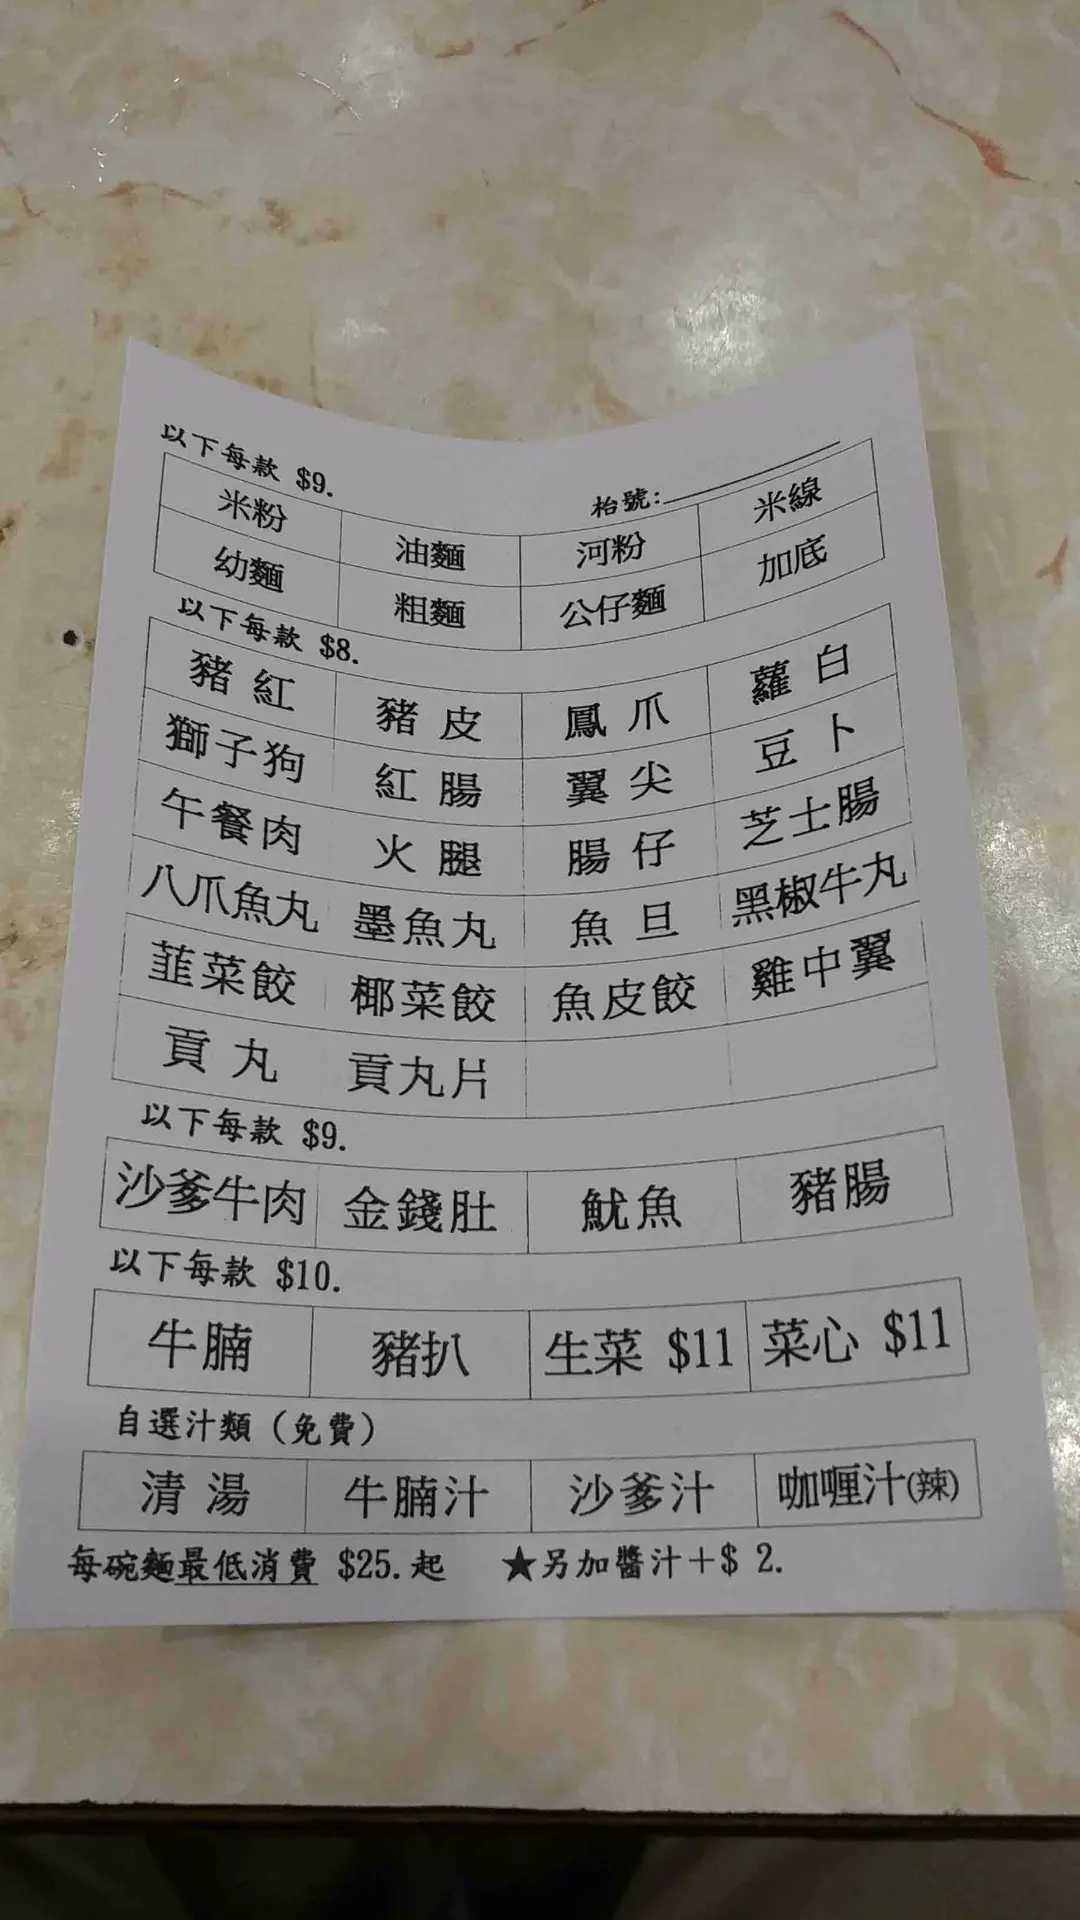 以下每款 $9.
枱號:
米粉 油麵 河粉 米線
幼麵 粗麵 公仔麵 加底
以下每款 $8.
豬紅 豬皮 鳳爪 蘿白
獅子狗 紅腸 翼尖 豆卜
午餐肉 火腿 腸仔 芝士腸
八爪魚丸 墨魚丸 魚旦 黑椒牛丸
韮菜餃 椰菜餃 魚皮餃 雞中翼
貢丸 貢丸片
以下每款 $9.
沙爹牛肉 金錢肚 魷魚 豬腸
以下每款 $10.
牛腩 豬扒 生菜 $11 菜心 $11
自選汁類（免費）
清湯 牛腩汁 沙爹汁 咖喱汁(辣)
每碗麵最低消費 $25.起 ★另加醬汁＋$ 2.